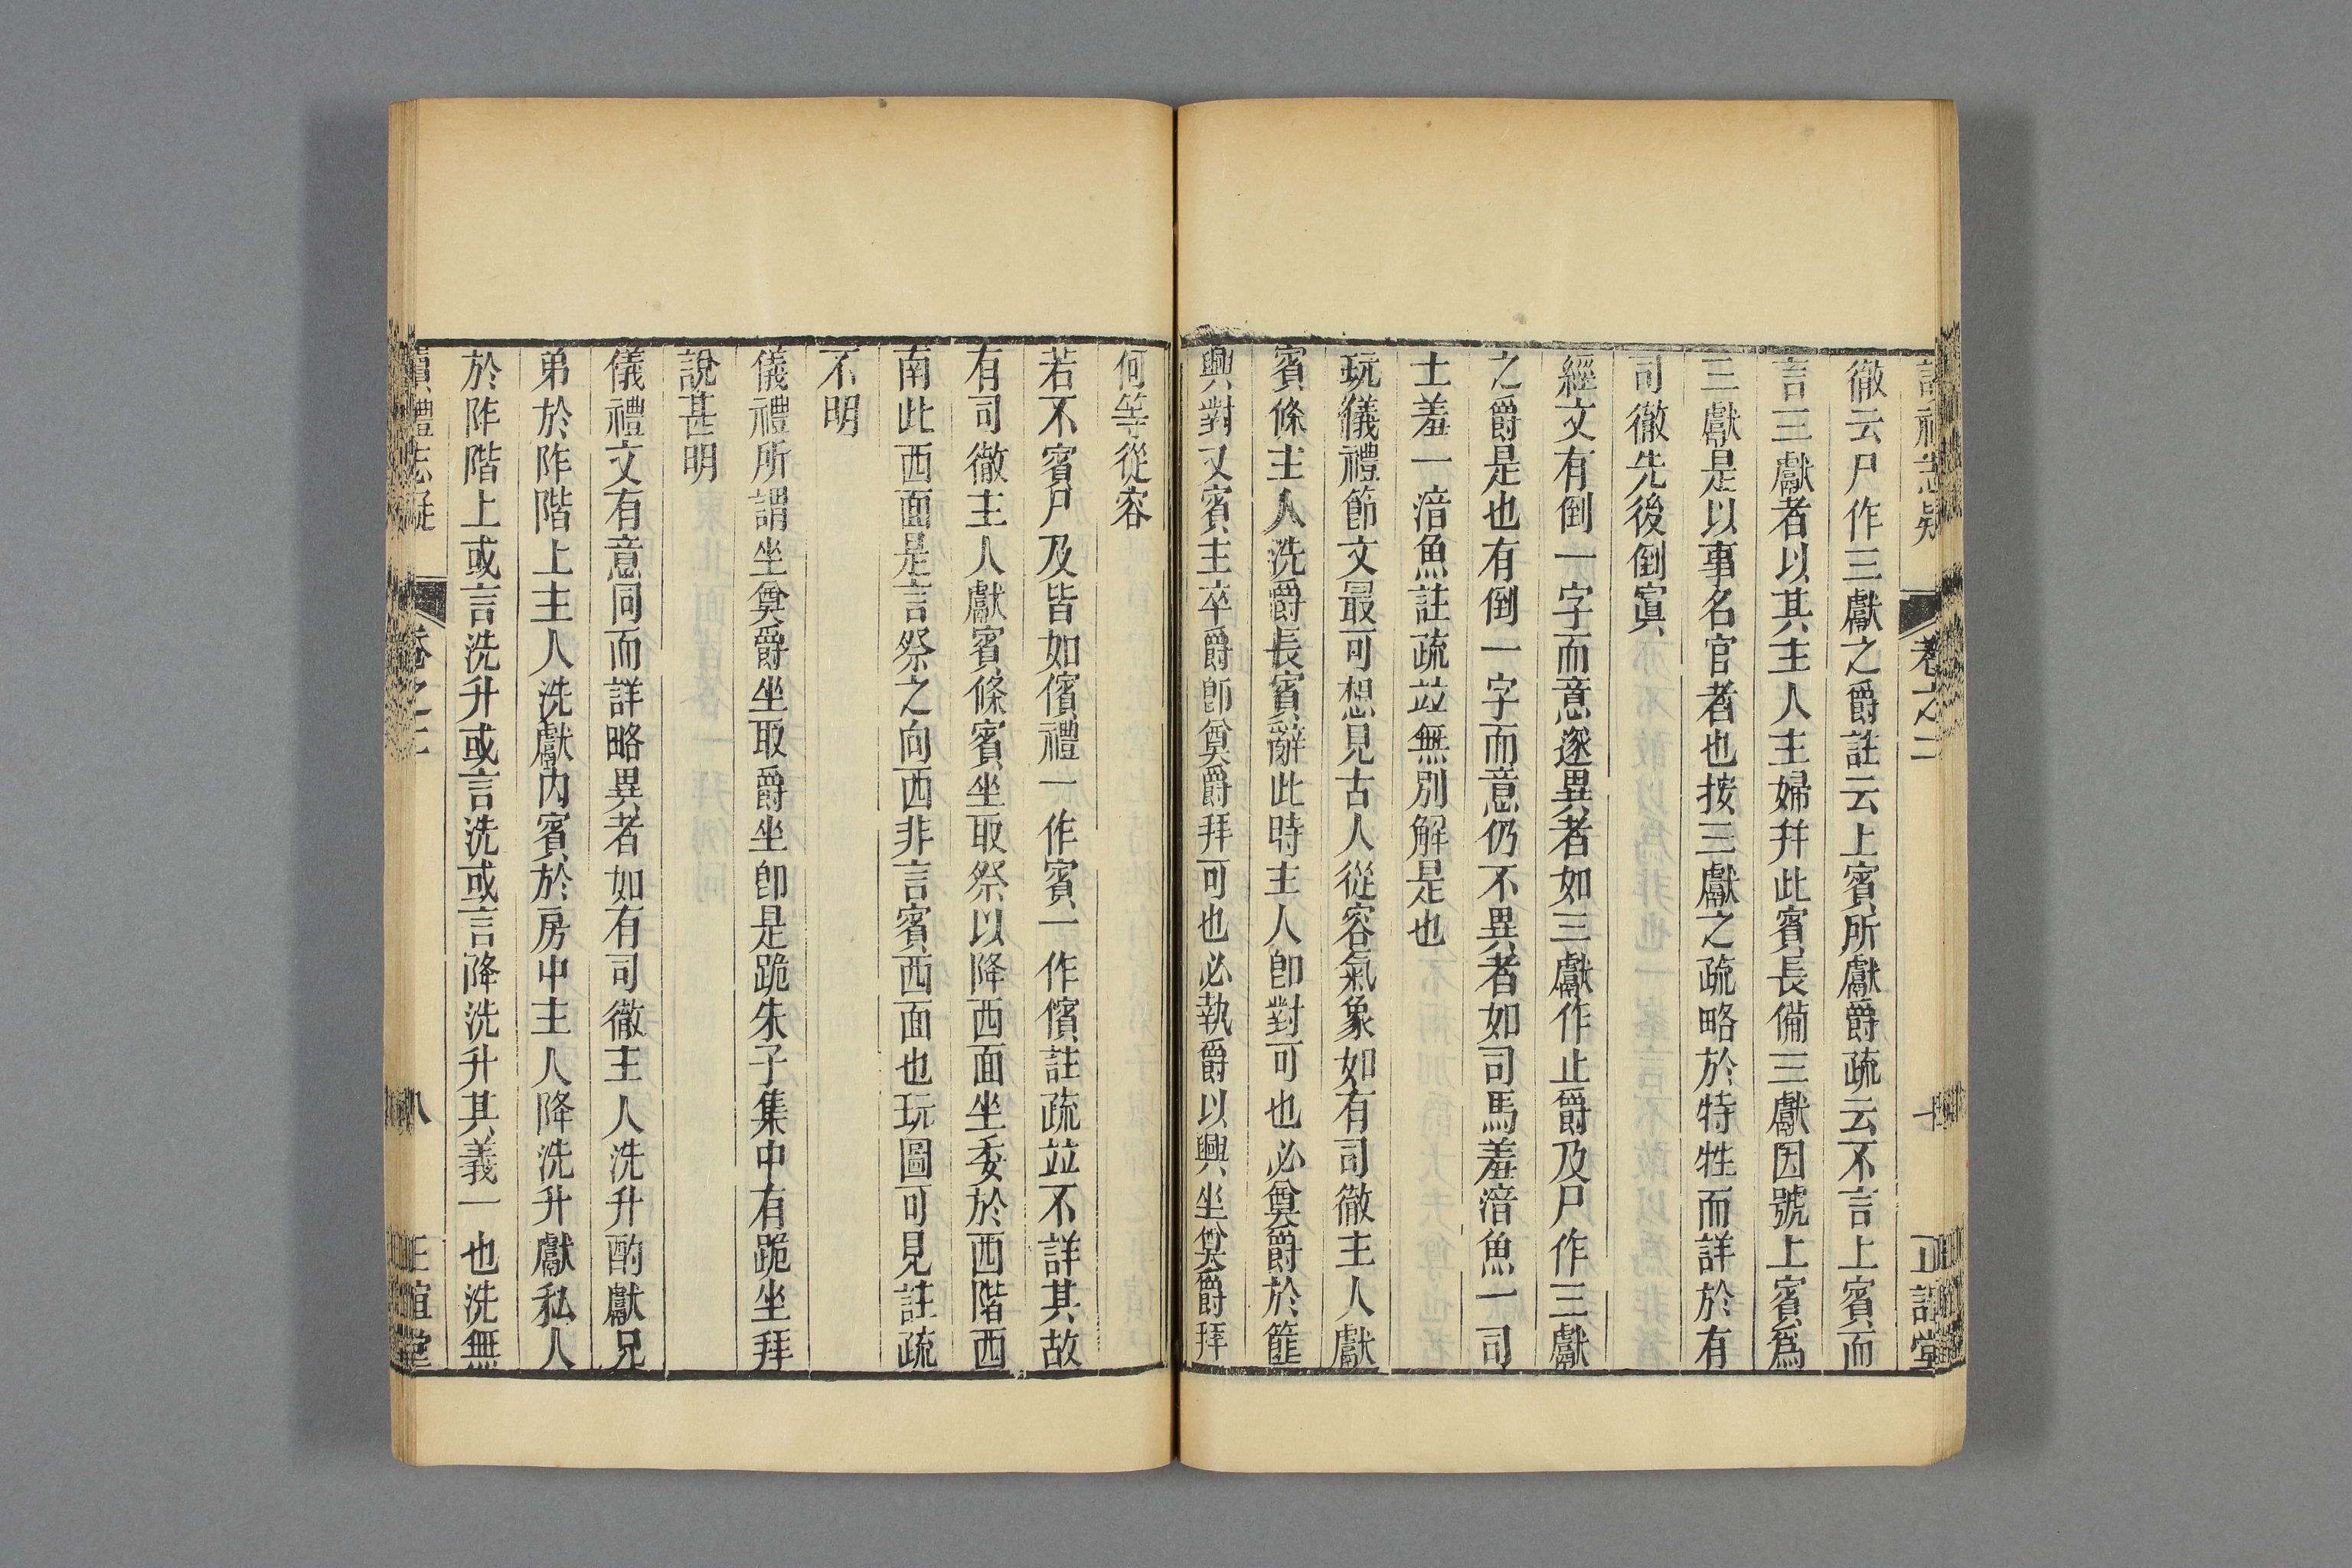 讀禮志疑 卷之二 十 正誼堂
徹云尸作三獻之爵註云上賓所獻爵疏云不言上賓而
言三獻者以其主人主婦幷此賓長備三獻因號上賓爲
三獻是以事名官者也按三獻之疏略於特牲而詳於有
司徹先後倒寘
經文有倒一字而意遂異者如三獻作止爵及尸作三獻
之爵是也有倒一字而意仍不異者如司馬羞湆魚一司
士羞一湆魚註疏竝無別解是也
玩儀禮節文最可想見古人從容氣象如有司徹主人獻
賓條主人洗爵長賓辭此時主人卽對可也必奠爵於篚
興對又賓主卒爵卽奠爵拜可也必執爵以興坐奠爵拜
何等從容
若不賓尸及皆如儐禮一作賓一作儐註疏竝不詳其故
有司徹主人獻賓條賓坐取祭以降西面坐委於西階西
南此西面是言祭之向西非言賓西面也玩圖可見註疏
不明
儀禮所謂坐奠爵坐取爵坐卽是跪朱子集中有跪坐拜
說甚明
儀禮文有意同而詳略異者如有司徹主人洗升酌獻兄
弟於阼階上主人洗獻內賓於房中主人降洗升獻私人
於阼階上或言洗升或言洗或言降洗升其義一也洗無
讀禮志疑 卷之二 八 正誼堂